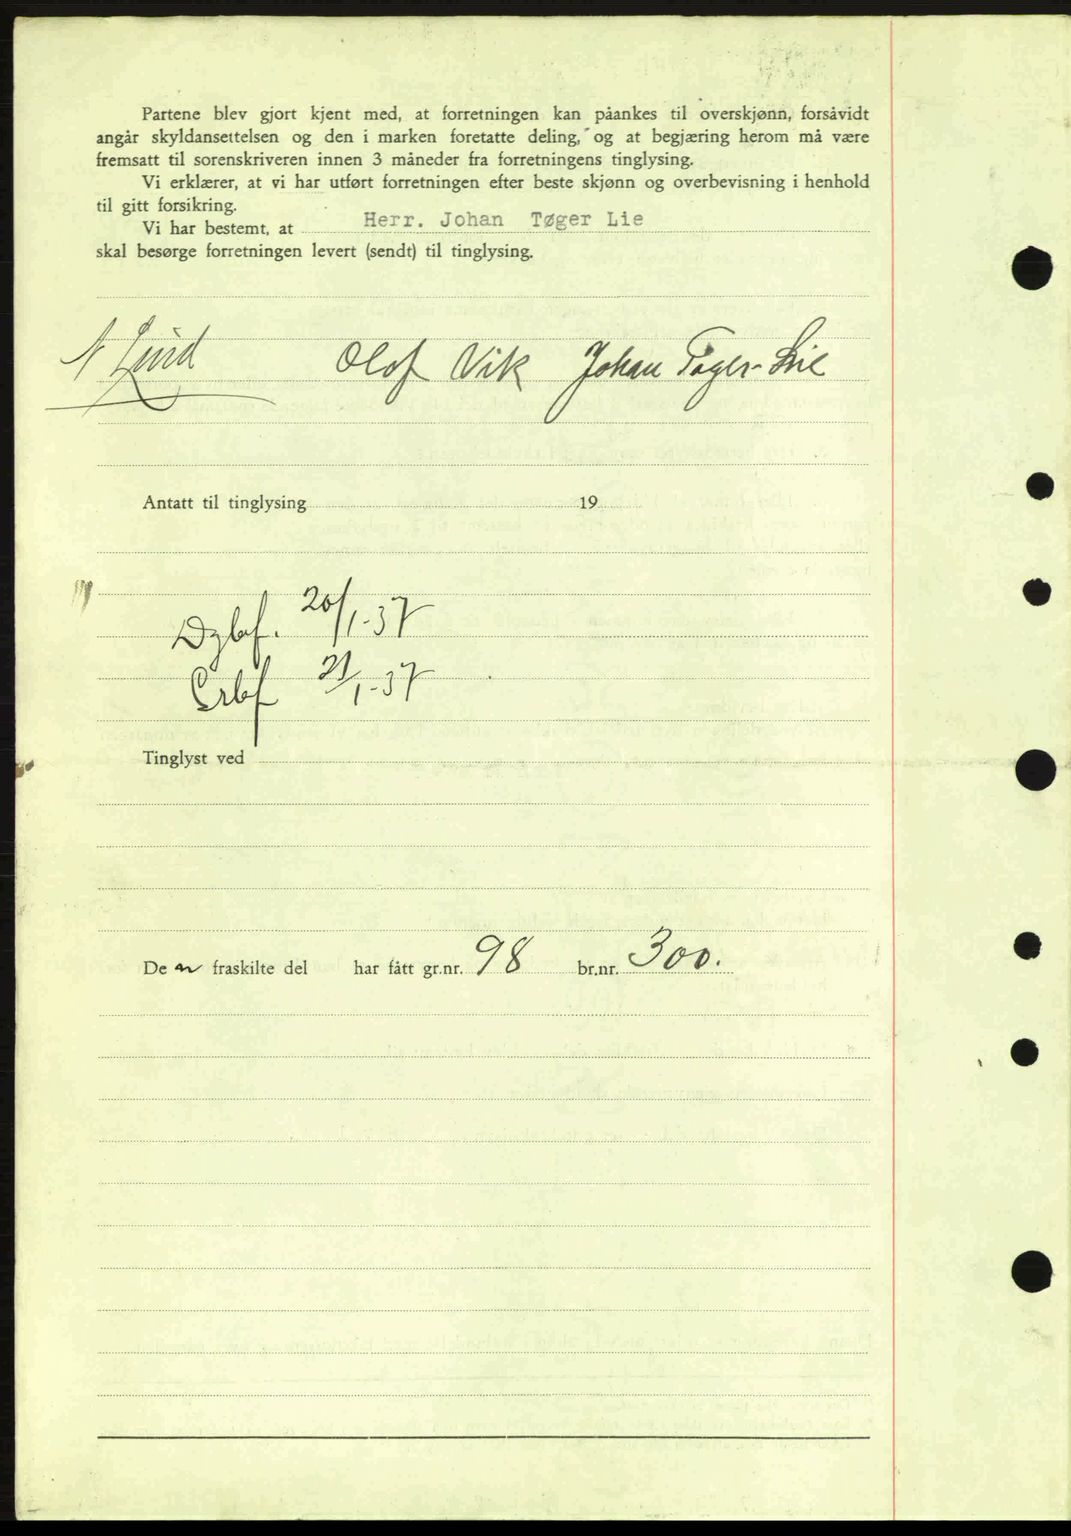 Partene blev gjort kjent med, at forretningen kan påankes til overskjønn, forsåvidt
angår skyldansettelsen og den i marken foretatte deling, og at begjæring herom må være
fremsatt til sorenskriveren innen 3 måneder fra forretningens tinglysing.
Vi erklærer, at vi har utført forretningen efter beste skjønn og overbevisning i henhold
til gitt forsikring.
Vi har bestemt, at Herr. Johan Tøger Lie
skal besørge forretningen levert (sendt) til tinglysing.
N Lind Olof Vik Johan Tøger-Lie
Antatt til tinglysing 19
Dgbf. 20/1-37
Grbf 21/1-37
Tinglyst ved
De n fraskilte del har fått gr.nr. 98 br.nr. 300.